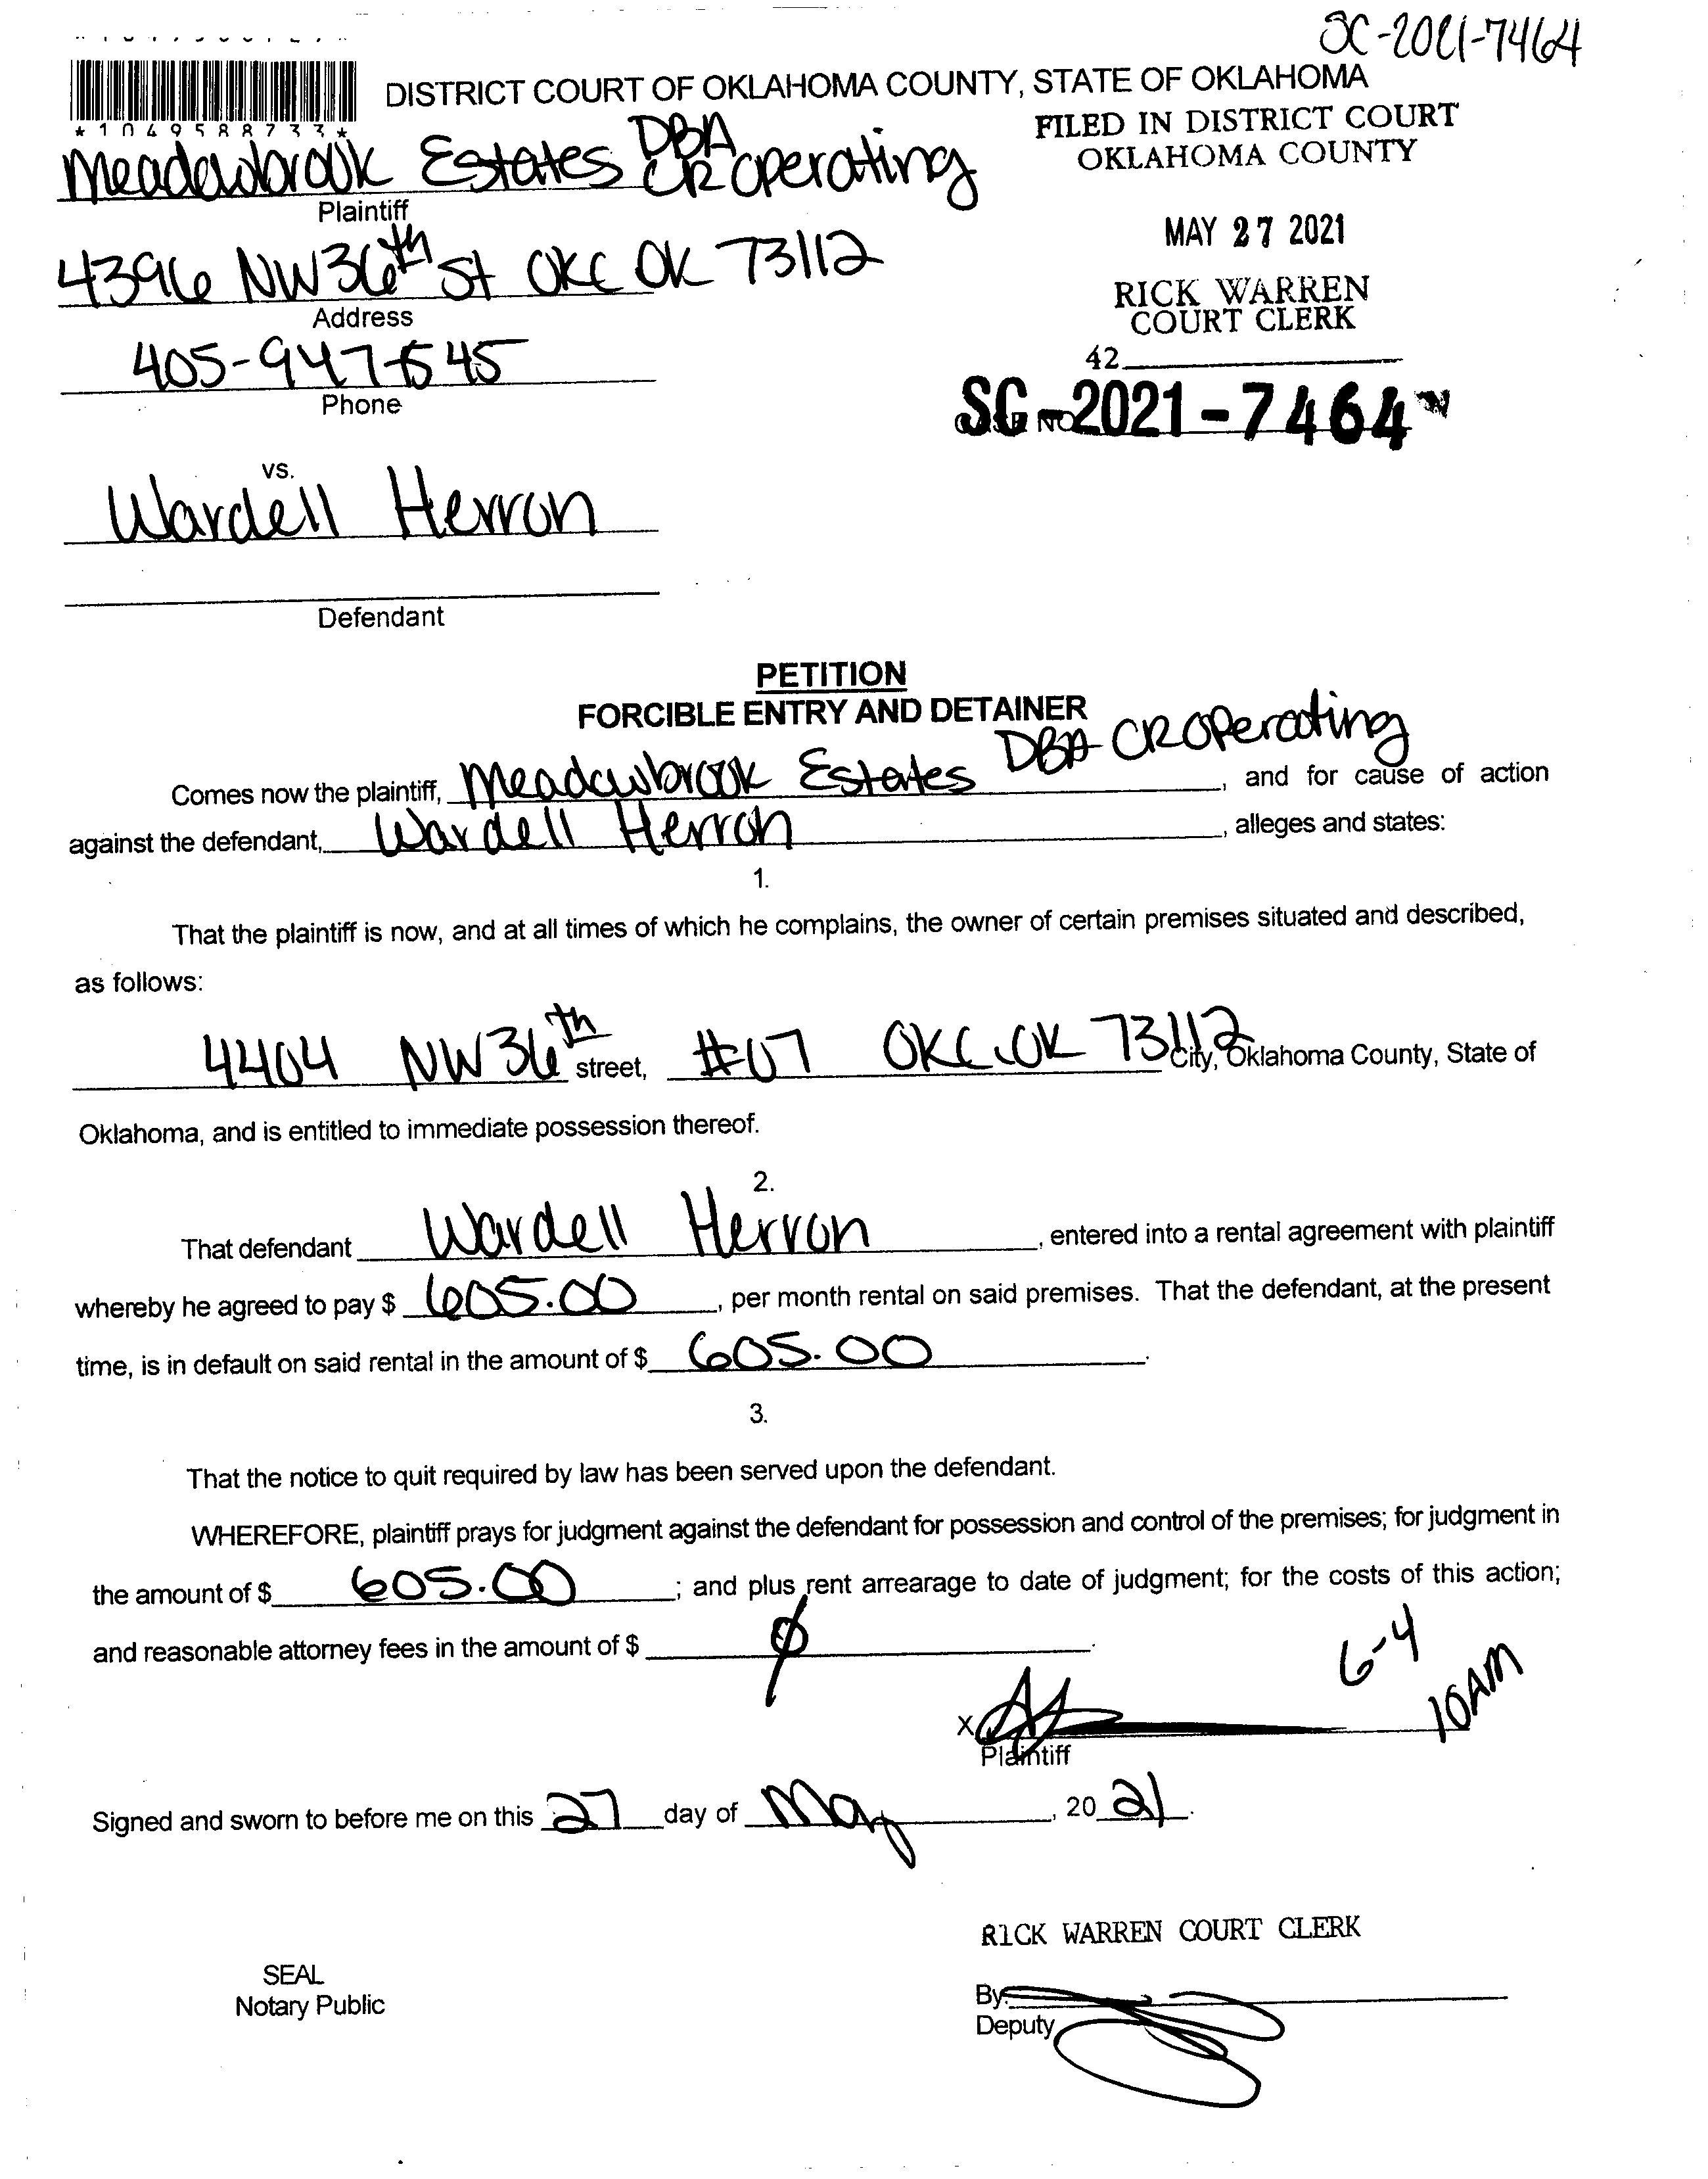 SC-2021-7464
DISTRICT COURT OF OKLAHOMA COUNTY, STATE OF OKLAHOMA
*1049588733*
FILED IN DISTRICT COURT
OKLAHOMA COUNTY
Meadowbrook Estates DBA CR Operating
Plaintiff
MAY 27 2021
4396 NW 36th St OKC OK 73112
Address
RICK WARREN
COURT CLERK
405-947-1545
Phone
42
SC-2021-7464
CASE NO.
vs.
Wardell Herron
Defendant
PETITION
FORCIBLE ENTRY AND DETAINER
Comes now the plaintiff, Meadowbrook Estates DBA CR Operating, and for cause of action
against the defendant, Wardell Herron, alleges and states:
1.
That the plaintiff is now, and at all times of which he complains, the owner of certain premises situated and described,
as follows:
4404 NW 36th street, #07 OKC OK 73112 City, Oklahoma County, State of
Oklahoma, and is entitled to immediate possession thereof.
2.
That defendant Wardell Herron, entered into a rental agreement with plaintiff
whereby he agreed to pay $ 605.00, per month rental on said premises. That the defendant, at the present
time, is in default on said rental in the amount of $ 605.00.
3.
That the notice to quit required by law has been served upon the defendant.
WHEREFORE, plaintiff prays for judgment against the defendant for possession and control of the premises; for judgment in
the amount of $ 605.00; and plus rent arrearage to date of judgment; for the costs of this action;
and reasonable attorney fees in the amount of $ ø.
6-4
10AM
X
Plaintiff
Signed and sworn to before me on this 27 day of May, 2021.
RICK WARREN COURT CLERK
SEAL
Notary Public
By:
Deputy